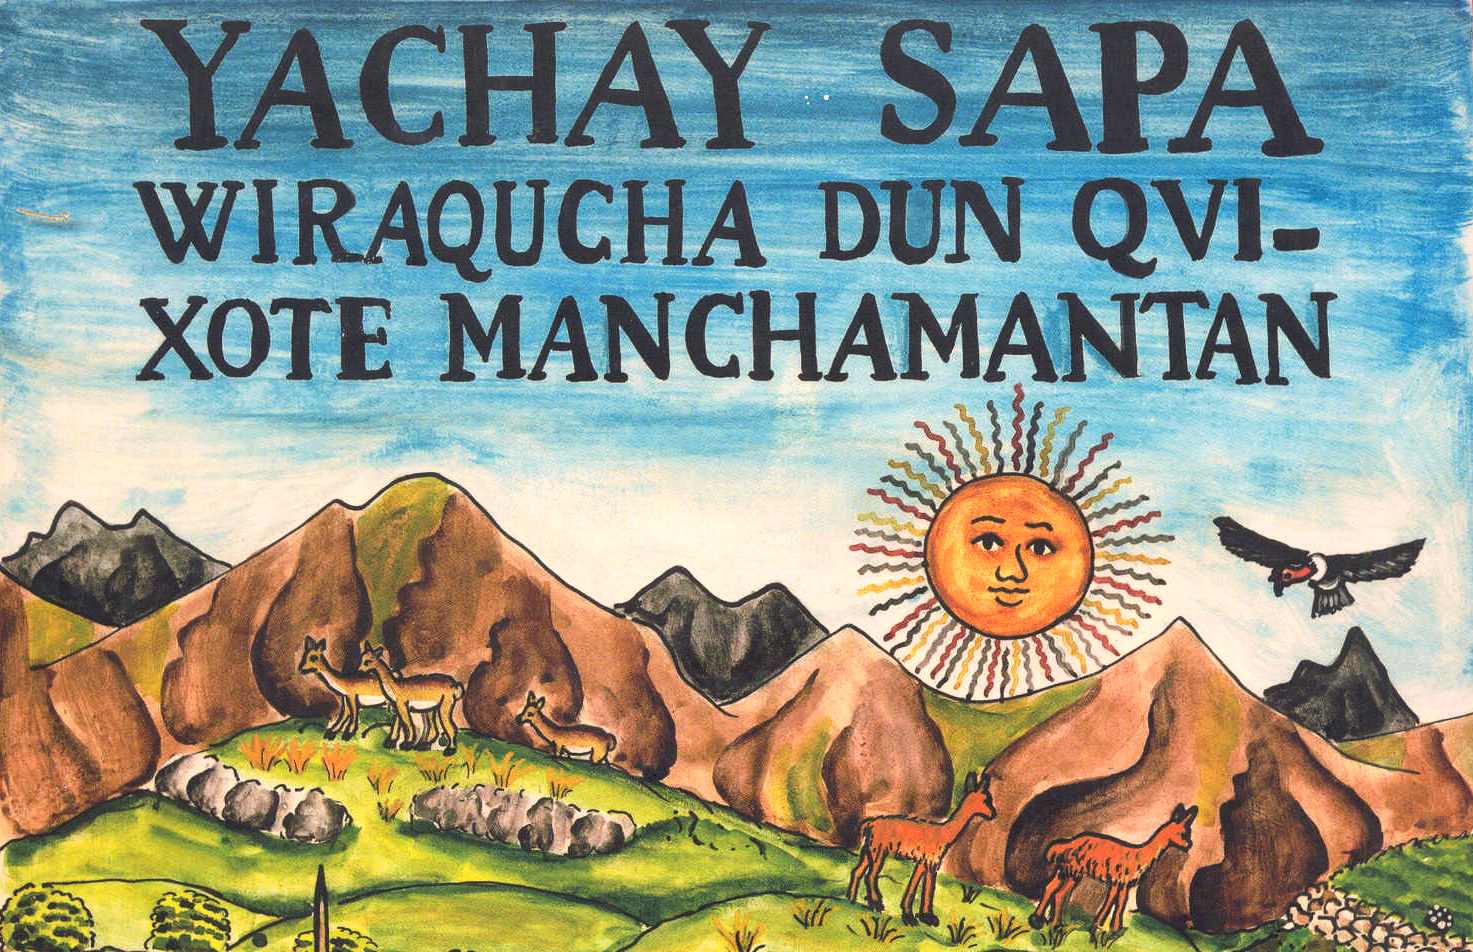 YACHAY SAPA
WIRAQUCHA DUN QVI-
XOTE MANCHAMANTAN